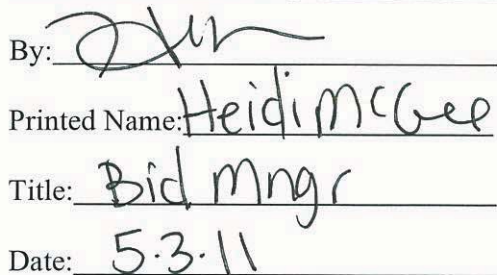 By:
Printed Name: Heidi McGee
Title: Bid Mngr
Date: 5.3.11